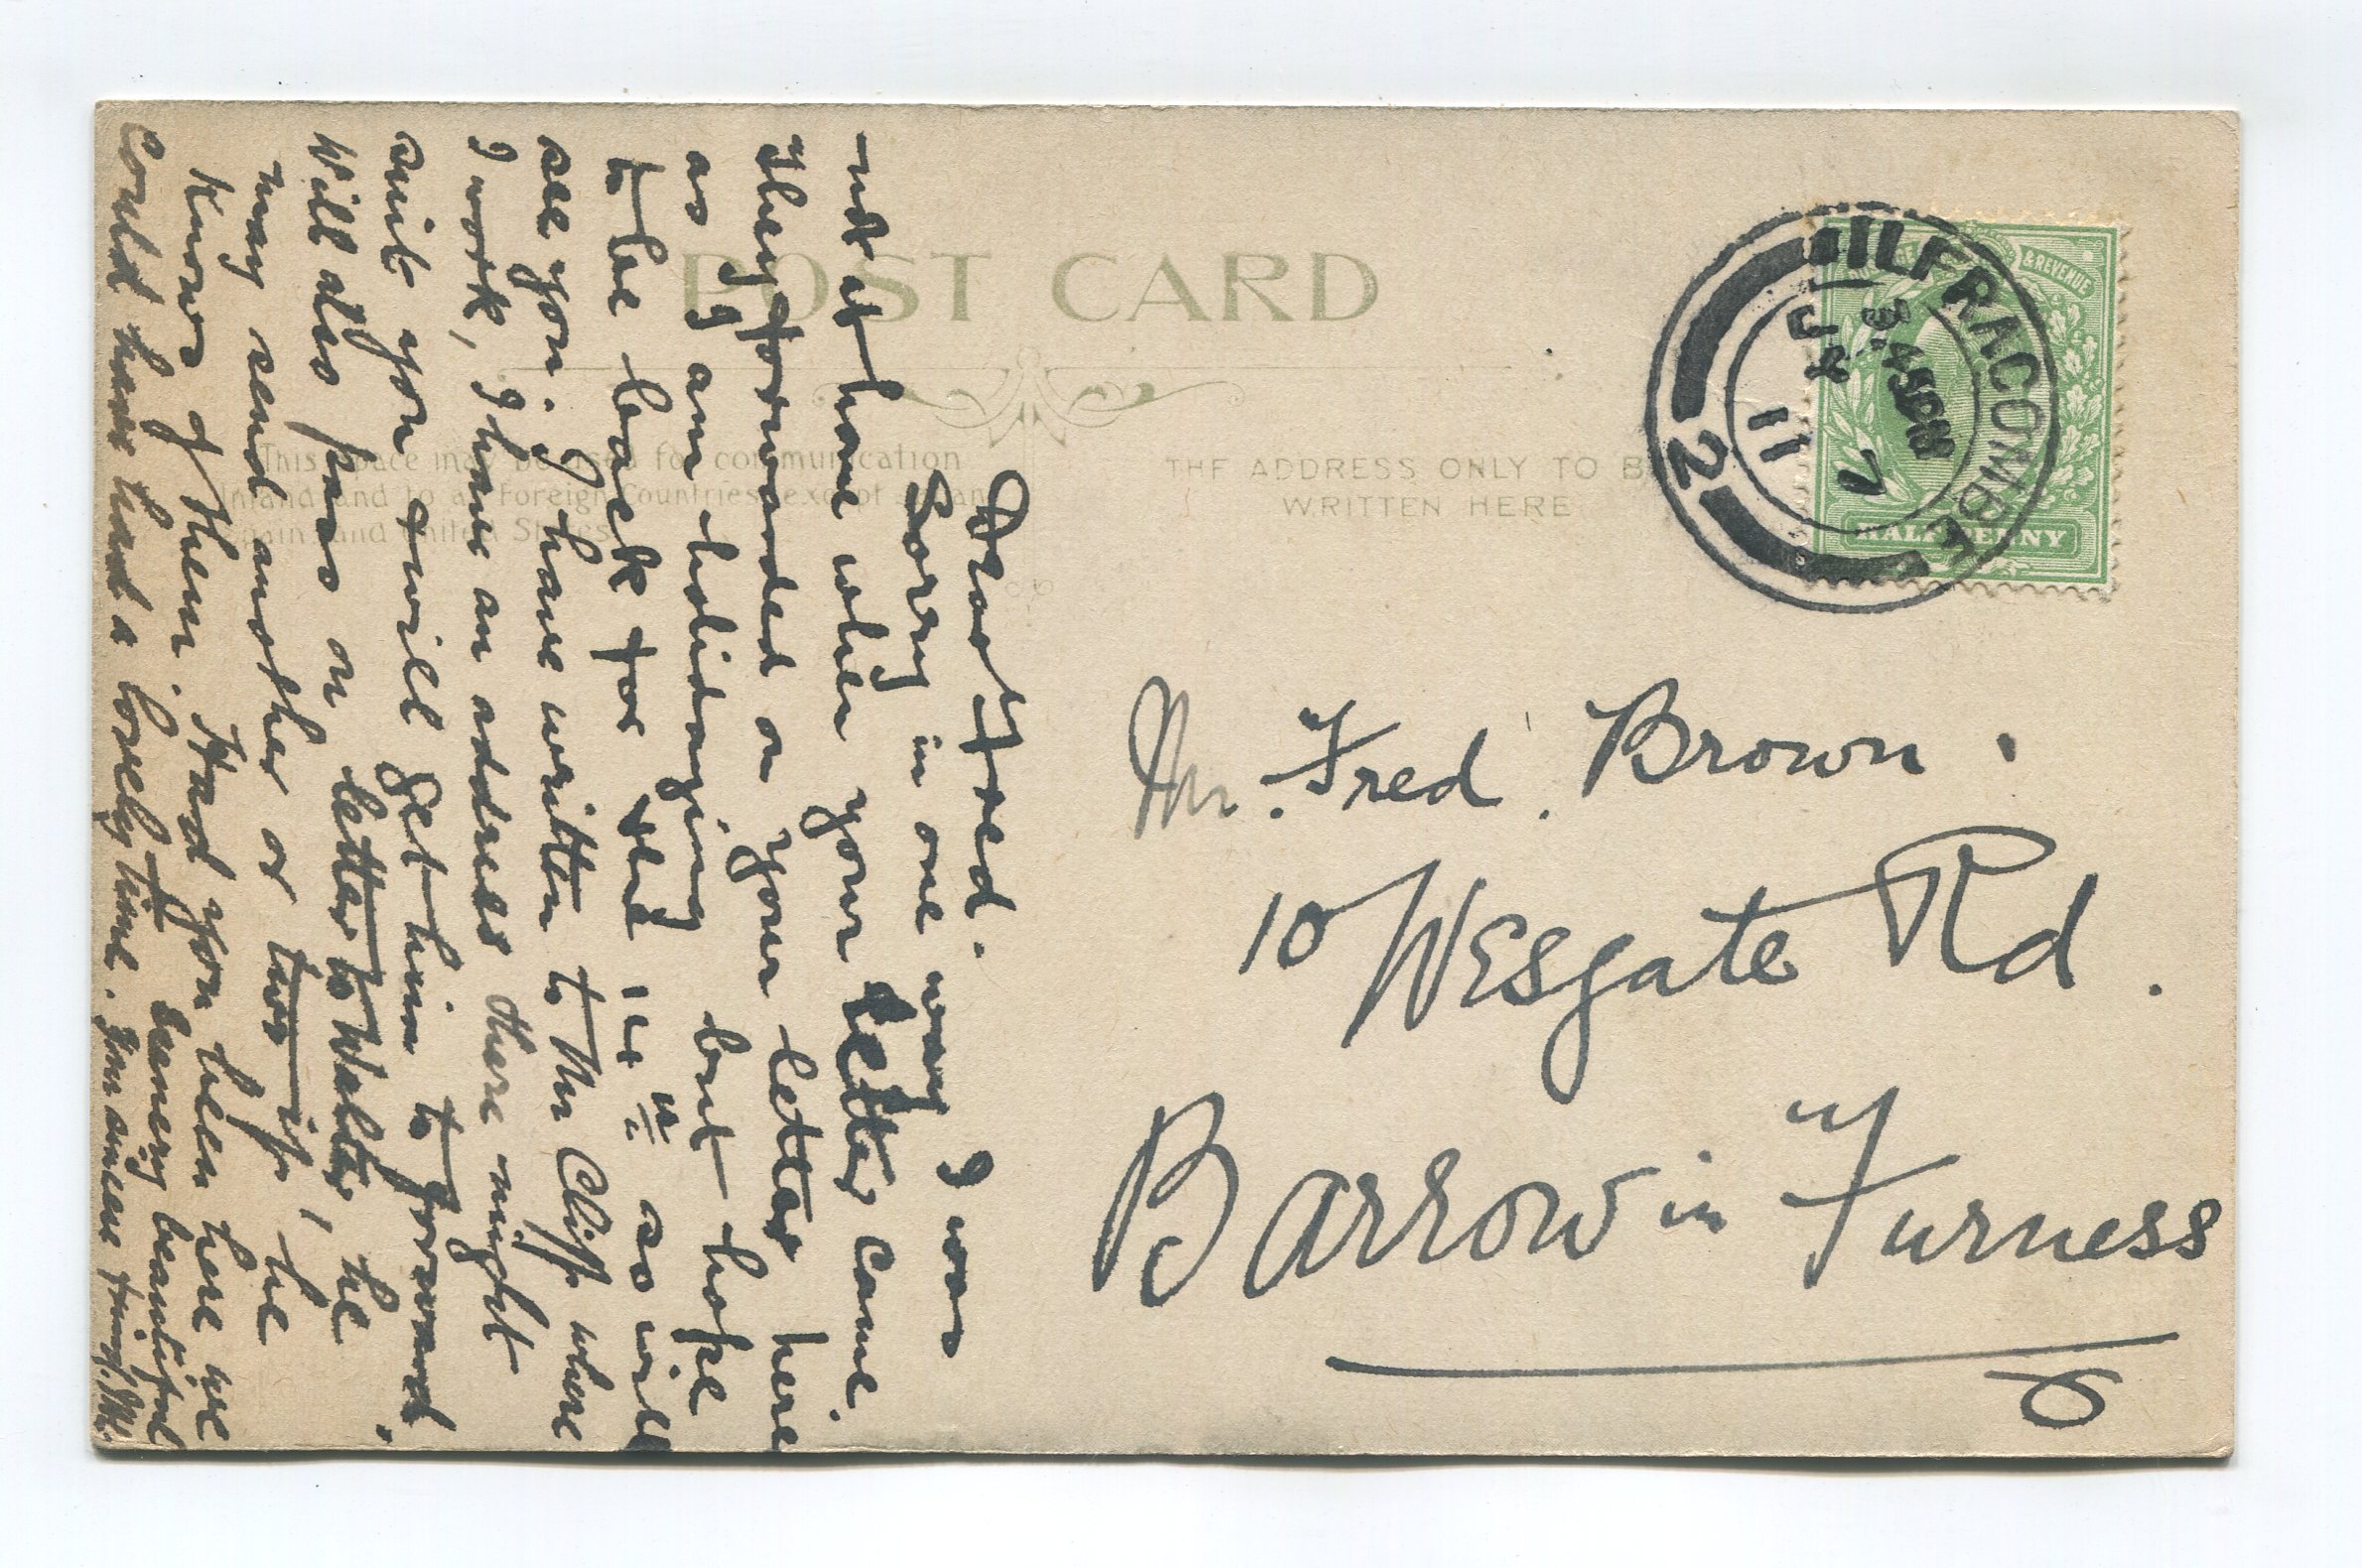 POST CARD
This space may be used for communication
Inland and to all Foreign Countries, except Japan
Spain and United States.
THE ADDRESS ONLY TO BE
WRITTEN HERE
ILFRACOMBE
3.45PM
JY 7
11
2
& REVENUE
HALFPENNY
Dear Fred.
Sorry in one way I was
not at home when your letter came.
They forwarded on your letter here
as I am holidaying but hope
to be back for the as will
see you. I have written to Mr Cliff where
I work, I have an address there might
suit you & will get him to forward.
Will also pass on letter to Walter, he
may send another or two if, he
knows of them. Had you been here we
could have had a lovely time.
beautiful
Mr. Fred. Brown.
10 Wesgate Rd.
Barrow in Furness
6